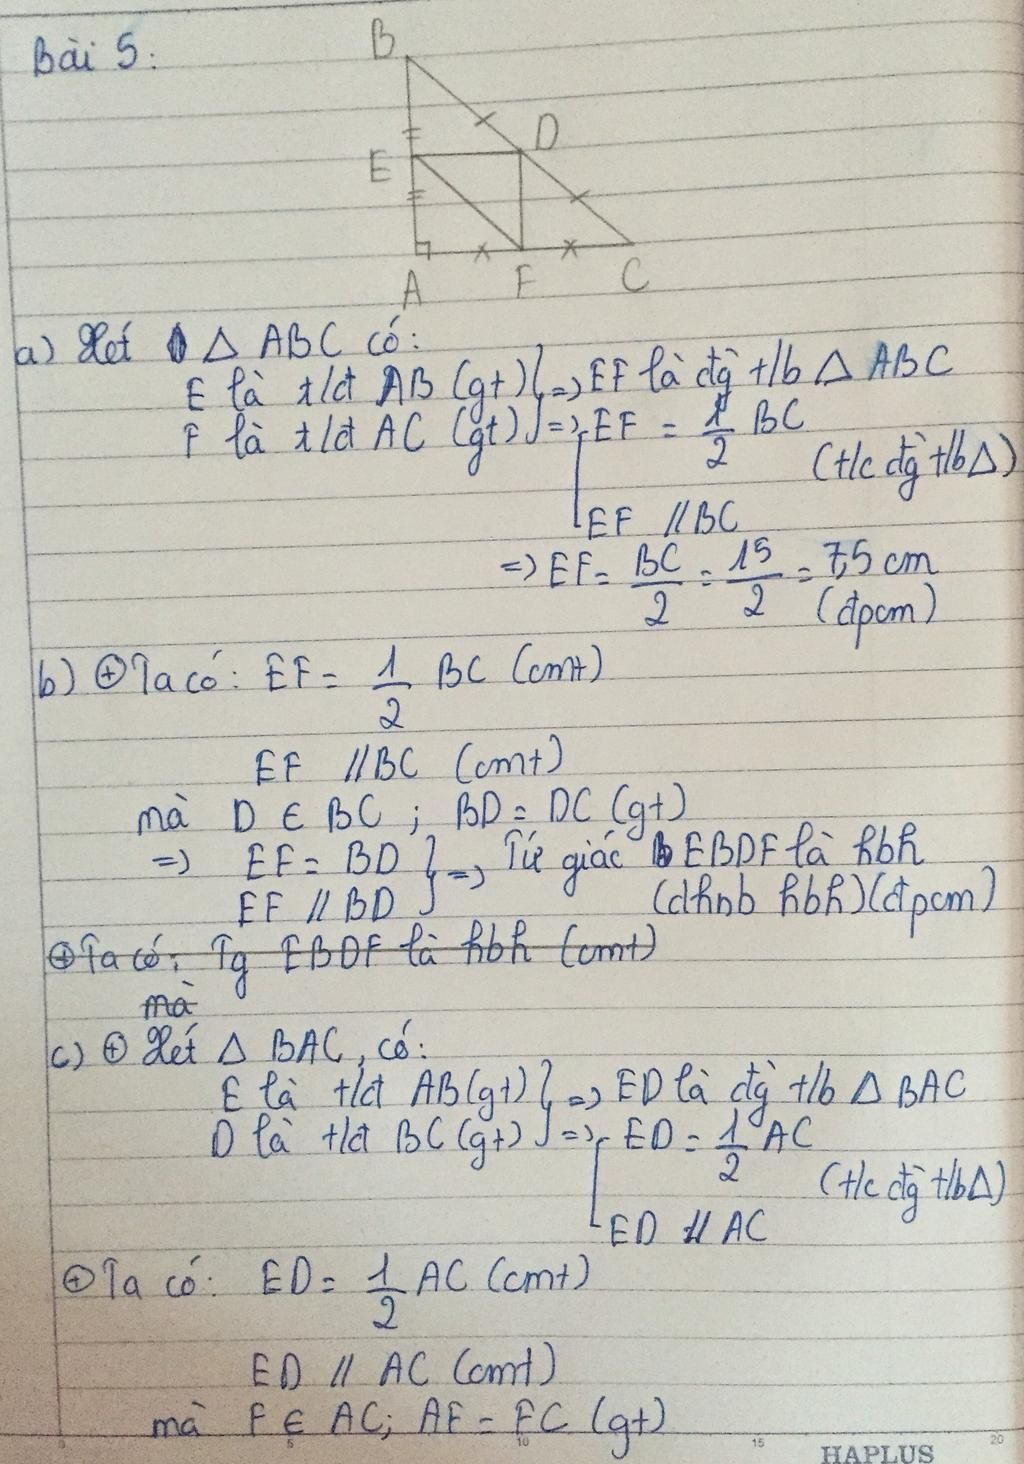 Bài 5:
B
D
E
A F C
a) Xét △ ABC có:
E là t/đ AB (gt) } => EF là đg̀ t/b △ ABC
F là t/đ AC (gt) } => EF = 1/2 BC
(t/c đg̀ t/b △)
EF // BC
=> EF = BC/2 = 15/2 = 7,5 cm
(đpcm)
b) ⊕ Ta có: EF = 1/2 BC (cmt)
EF // BC (cmt)
mà D ∈ BC ; BD = DC (gt)
=> EF = BD } => Tứ giác EBDF là hbh
EF // BD } (dhnb hbh) (đpcm)
⊕ Ta có: Tg EBDF là hbh (cmt)
mà
c) ⊕ Xét △ BAC, có:
E là t/đ AB (gt) } => ED là đg̀ t/b △ BAC
D là t/đ BC (gt) } => ED = 1/2 AC
(t/c đg̀ t/b △)
ED // AC
⊕ Ta có: ED = 1/2 AC (cmt)
ED // AC (cmt)
mà F ∈ AC; AF = FC (gt)
0 5 10 15 20
HAPLUS